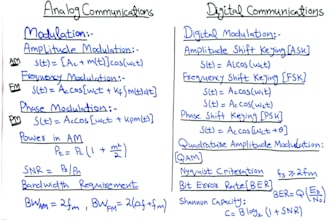 Analog Communications
Modulation:-
Amplitude Modulation:-
AM S(t) = [Ac + m(t)] cosωct
Frequency Modulation:-
FM S(t) = Ac cos[ωct + kf∫m(t)dt]
Phase Modulation:-
PM S(t) = Ac cos[ωct + kpm(t)]
Power in AM
Pt = Pc(1 + m²/2)
SNR = Ps/Pn
Bandwidth Requirement
BWAM = 2fm , BWFM = 2(Δf+fm)
Digital Communications
Digital Modulation:-
Amplitude Shift Keying [ASK]
S(t) = A cosωct
Frequency Shift Keying [FSK]
S(t) = Ac cosω1t
S(t) = Ac cosω2t
Phase Shift Keying [PSK]
S(t) = Ac cos[ωct + θ]
Quadrature Amplitude Modulation:
QAM
Nyquist Criteration fs ≥ 2fm
Bit Errors Rate [BER]
BER = Q(√Eb/N0)
Shannon Capacity:
C = B log2 (1 + SNR)